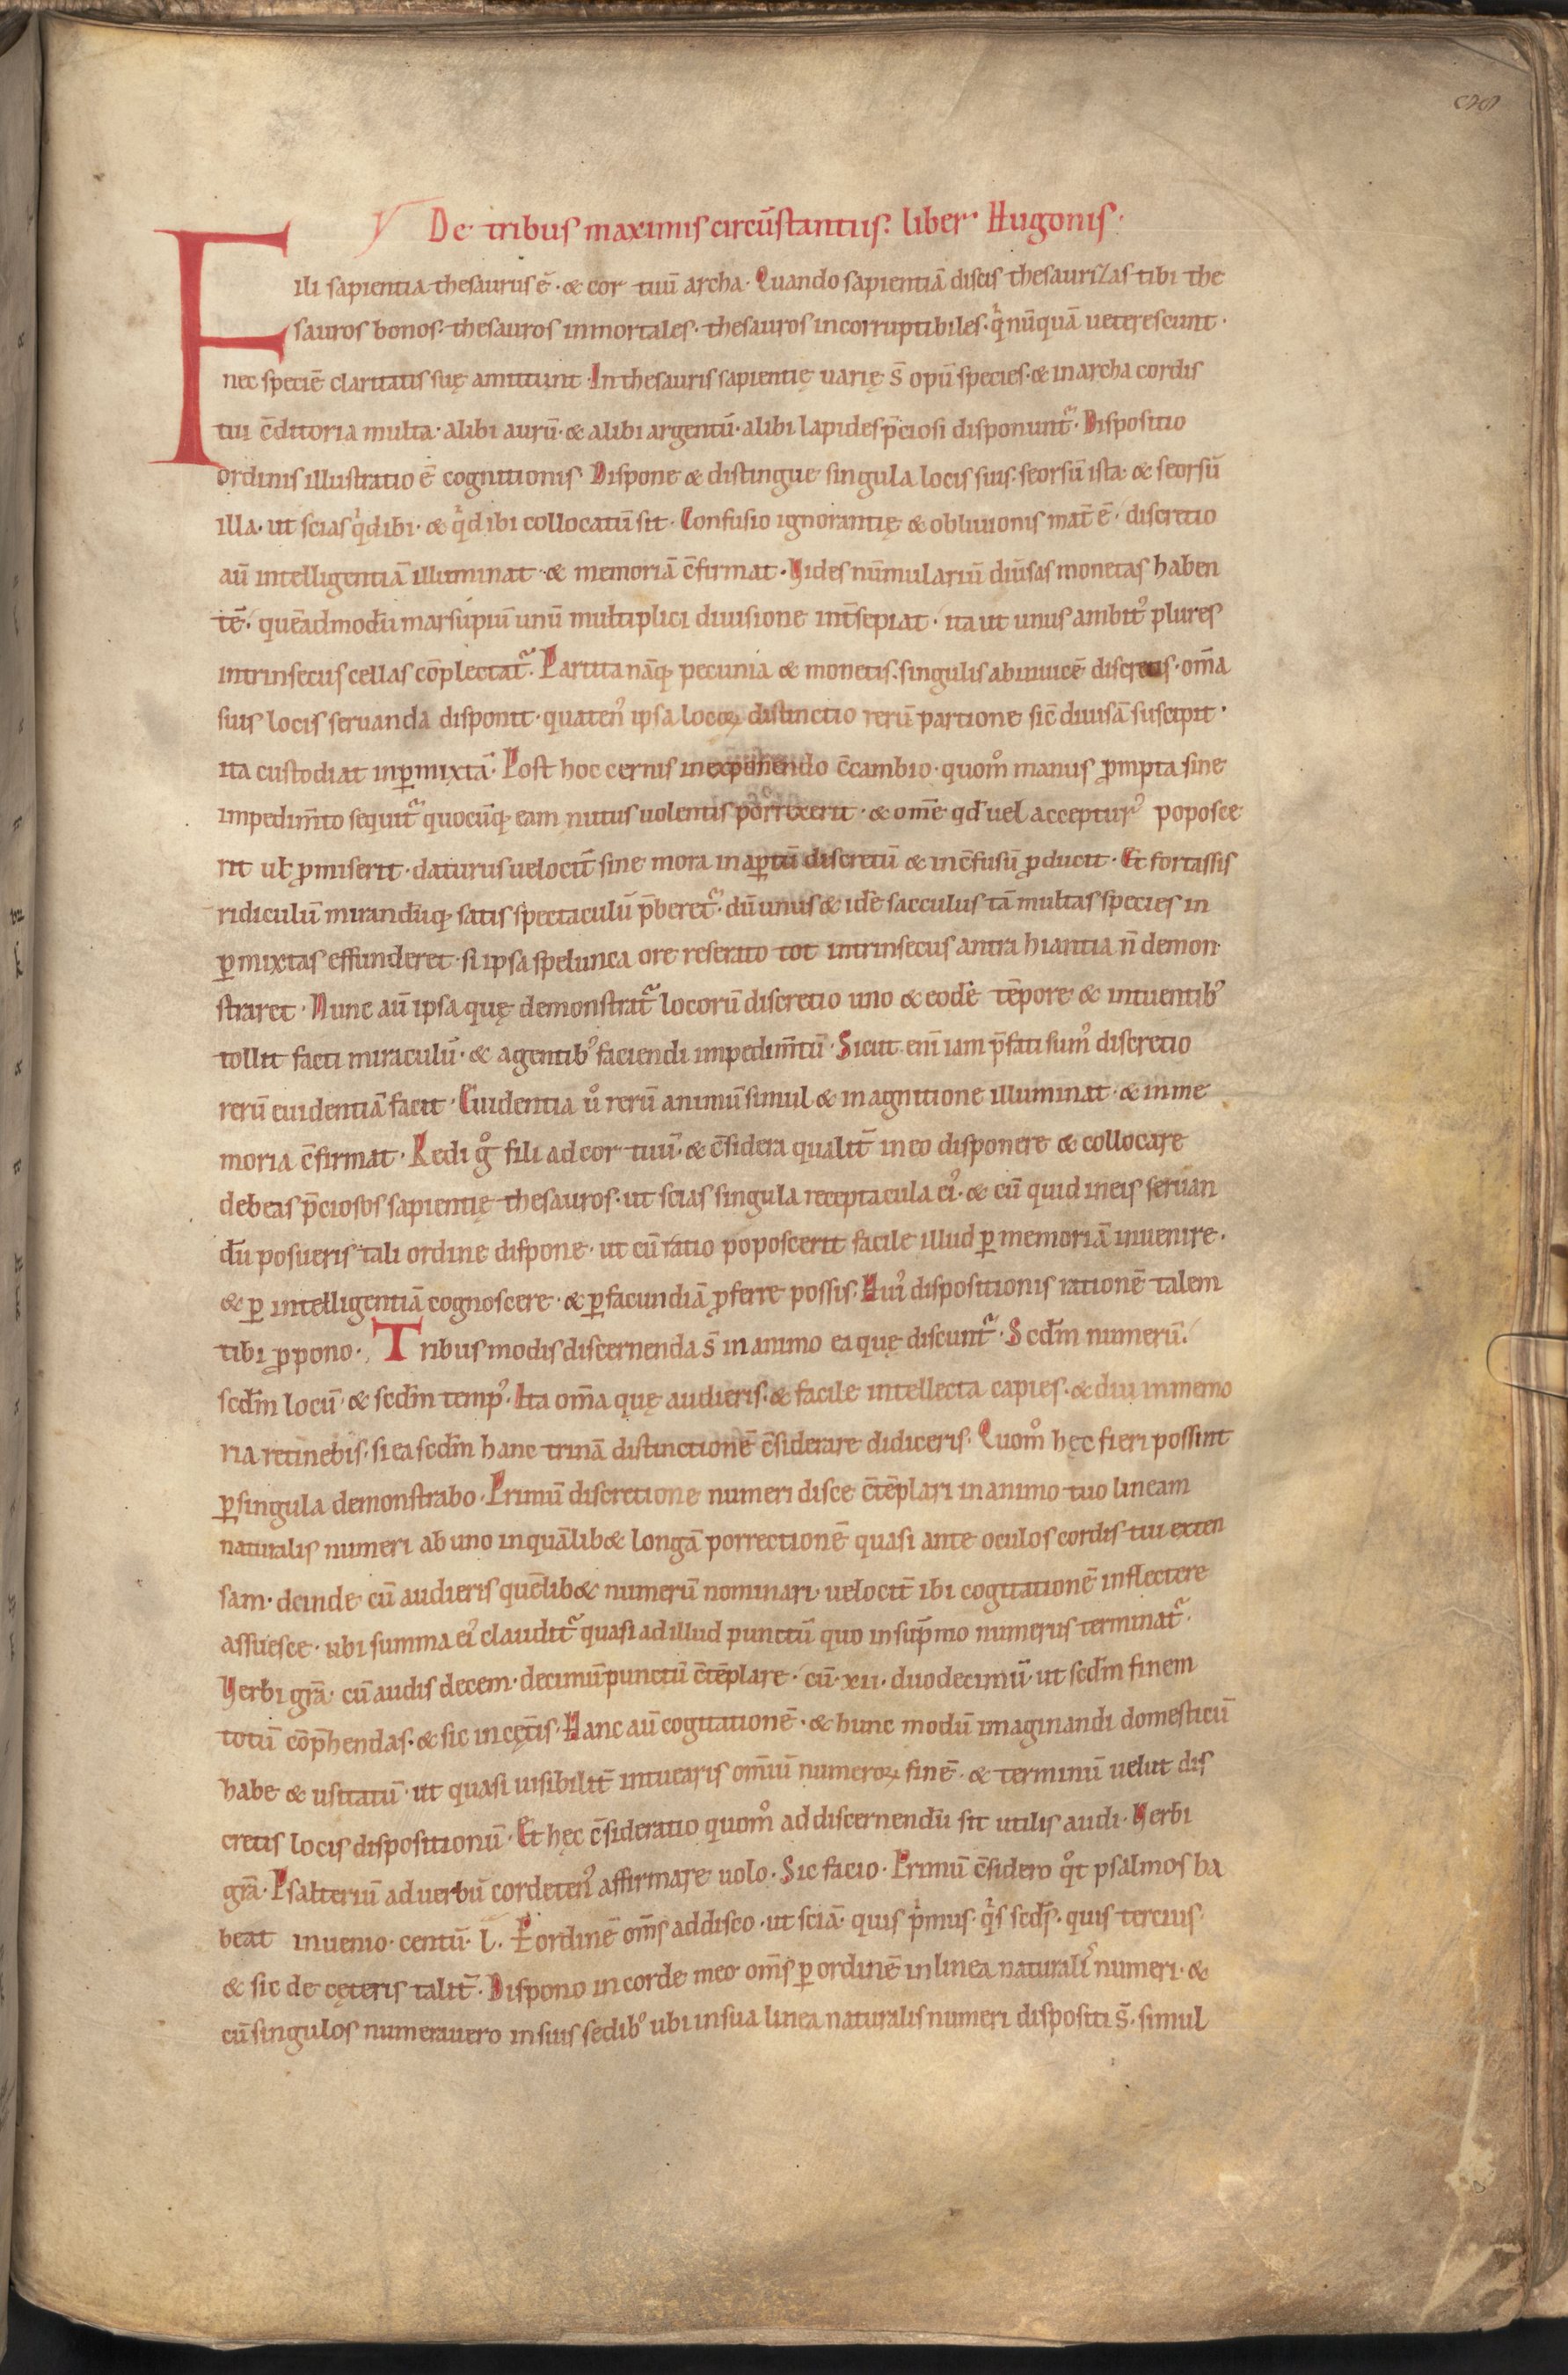 De tribus maximis circūstantiis. liber Hugonis.
Fili sapientia thesaurus ē· & cor tuū archa· Quando sapientiā discis thesaurizas tibi the
sauros bonos· thesauros inmortales· thesauros incorruptibiles· qͥ nūquā ueterescunt·
nec speciē claritatis suę amittunt· In thesauris sapientię uarię s̄ opū species· & in archa cordis
tui c̄ditoria multa· alibi aurū· & alibi argentū· alibi lapides p̄ciosi disponunt᷑· Dispositio
ordinis illustratio ē cognitionis· Dispone & distingue singula locis suis· seorsū ista· & seorsū
illa· ut scias qͥd ibi· & qͥd ibi collocatū sit· Confusio ignorantię & obliuionis mat̄ ē· discretio
aū intelligentiā illuminat· & memoriā c̄firmat· Vides nūmulariū diūsas monetas haben
tē· quēadmodū marsupiū unū multiplici diuisione int̄sepiat· ita ut unus ambitꝰ plures
intrinsecus cellas cōplectat᷑· Partita nāq; pecunia & monetis singulis abinuicē discretis· om̄a
suis locis seruanda disponit· quatenꝰ ipsa locoꝝ distinctio rerū partione sic̄ diuisā suscipit·
ita custodiat inꝑmixtā· Post hoc cernis in exponendo c̄cambio· quom̊ manus ꝓmpta sine
impedim̄to sequit᷑ quocūq; eam nutus uolentis porrexerit· & om̄e qd̄ uel accepturꝰ poposce
rit ul̄ ꝓmiserit· daturus uelocit̄ sine mora inaꝑtū discretū & inc̄fusū ꝓducit· Et fortassis
ridiculū mirandūq; satis spectaculū p̄beret᷑· dū unus & idē sacculus tā multas species in
ꝑmixtas effunderet· si ipsa spelunca ore reserato tot intrinsecus antra hiantia n̄ demon
straret· Nunc aū ipsa quę demonstrat᷑ locorū discretio uno & eodē tēpore & intuentibꝰ
tollit facti miraculū· & agentibꝰ faciendi impedim̄tū· Sicut eni̅ iam p̄fati sumꝰ discretio
rerū euidentiā facit· Euidentia u̇o rerū animū simul & in agnitione illuminat· & in me
moria c̄firmat· Redi g̊ fili ad cor tuū· & c̄sidera qualit̄ in eo disponere & collocare
debeas p̄ciosos sapientię thesauros· ut scias singula receptacula eiꝰ· & cū quid in eis seruan
dū posueris tali ordine dispone· ut cū ratio poposcerit facile illud ꝑ memoriā inuenire·
& ꝑ intelligentiā cognoscere· & ꝑ facundiā ꝓferre possis· Huiꝰ dispositionis rationē talem
tibi ꝓpono· Tribus modis discernenda s̄ in animo ea quę discunt᷑· Scdm̄ numerū·
scdm̄ locū· & scdm̄ tempꝰ· Ita om̄a quę audieris· & facile intellecta capies· & diu in memo
ria retinebis· si ea scdm̄ hanc trinā distinctionē c̄siderare didiceris· Quom̊ hęc fieri possint
ꝑ singula demonstrabo· Primū discretione numeri disce c̄tēplari in animo tuo lineam
naturalis numeri ab uno in quālib& longā porrectionē quasi ante oculos cordis tui exten
sam· deinde cū audieris quēlib& numerū nominari uelocit̄ ibi cogitationē inflectere
assuesce· ubi summa eiꝰ claudit᷑ quasi ad illud punctū quo in sup̄mo numerus terminat᷑·
Verbi gr̄a· cū audis decem· decimū punctū c̄tēplare· cū· xii· duodecimū· ut scdm̄ finem
totū cōp̄hendas· & sic in cęt̄is· Hanc aū cogitationē· & hunc modū imaginandi domesticū
habe & usitatū· ut quasi uisibilit̄ intuearis omīū numeroꝝ finē· & terminū uelut dis
cretis locis dispositionū· Et hęc c̄sideratio quom̊ ad discernendū sit utilis audi· Verbi
gr̄a· Psalteriū ad uerbū cordetenꝰ affirmare uolo· Sic facio· Primū c̄sidero qͦt psalmos ha
beat inuenio· centū· l· Per ordinē om̄s addisco· ut sciā· quis pͥmus· qͥs scd̄s· quis tercius·
& sic de cęteris talit̄· Dispono in corde meo om̄s ꝑ ordinē in linea naturalis numeri· &
cū singulos numerauero in suis sedibꝰ ubi in sua linea naturalis numeri dispositi s̄· simul